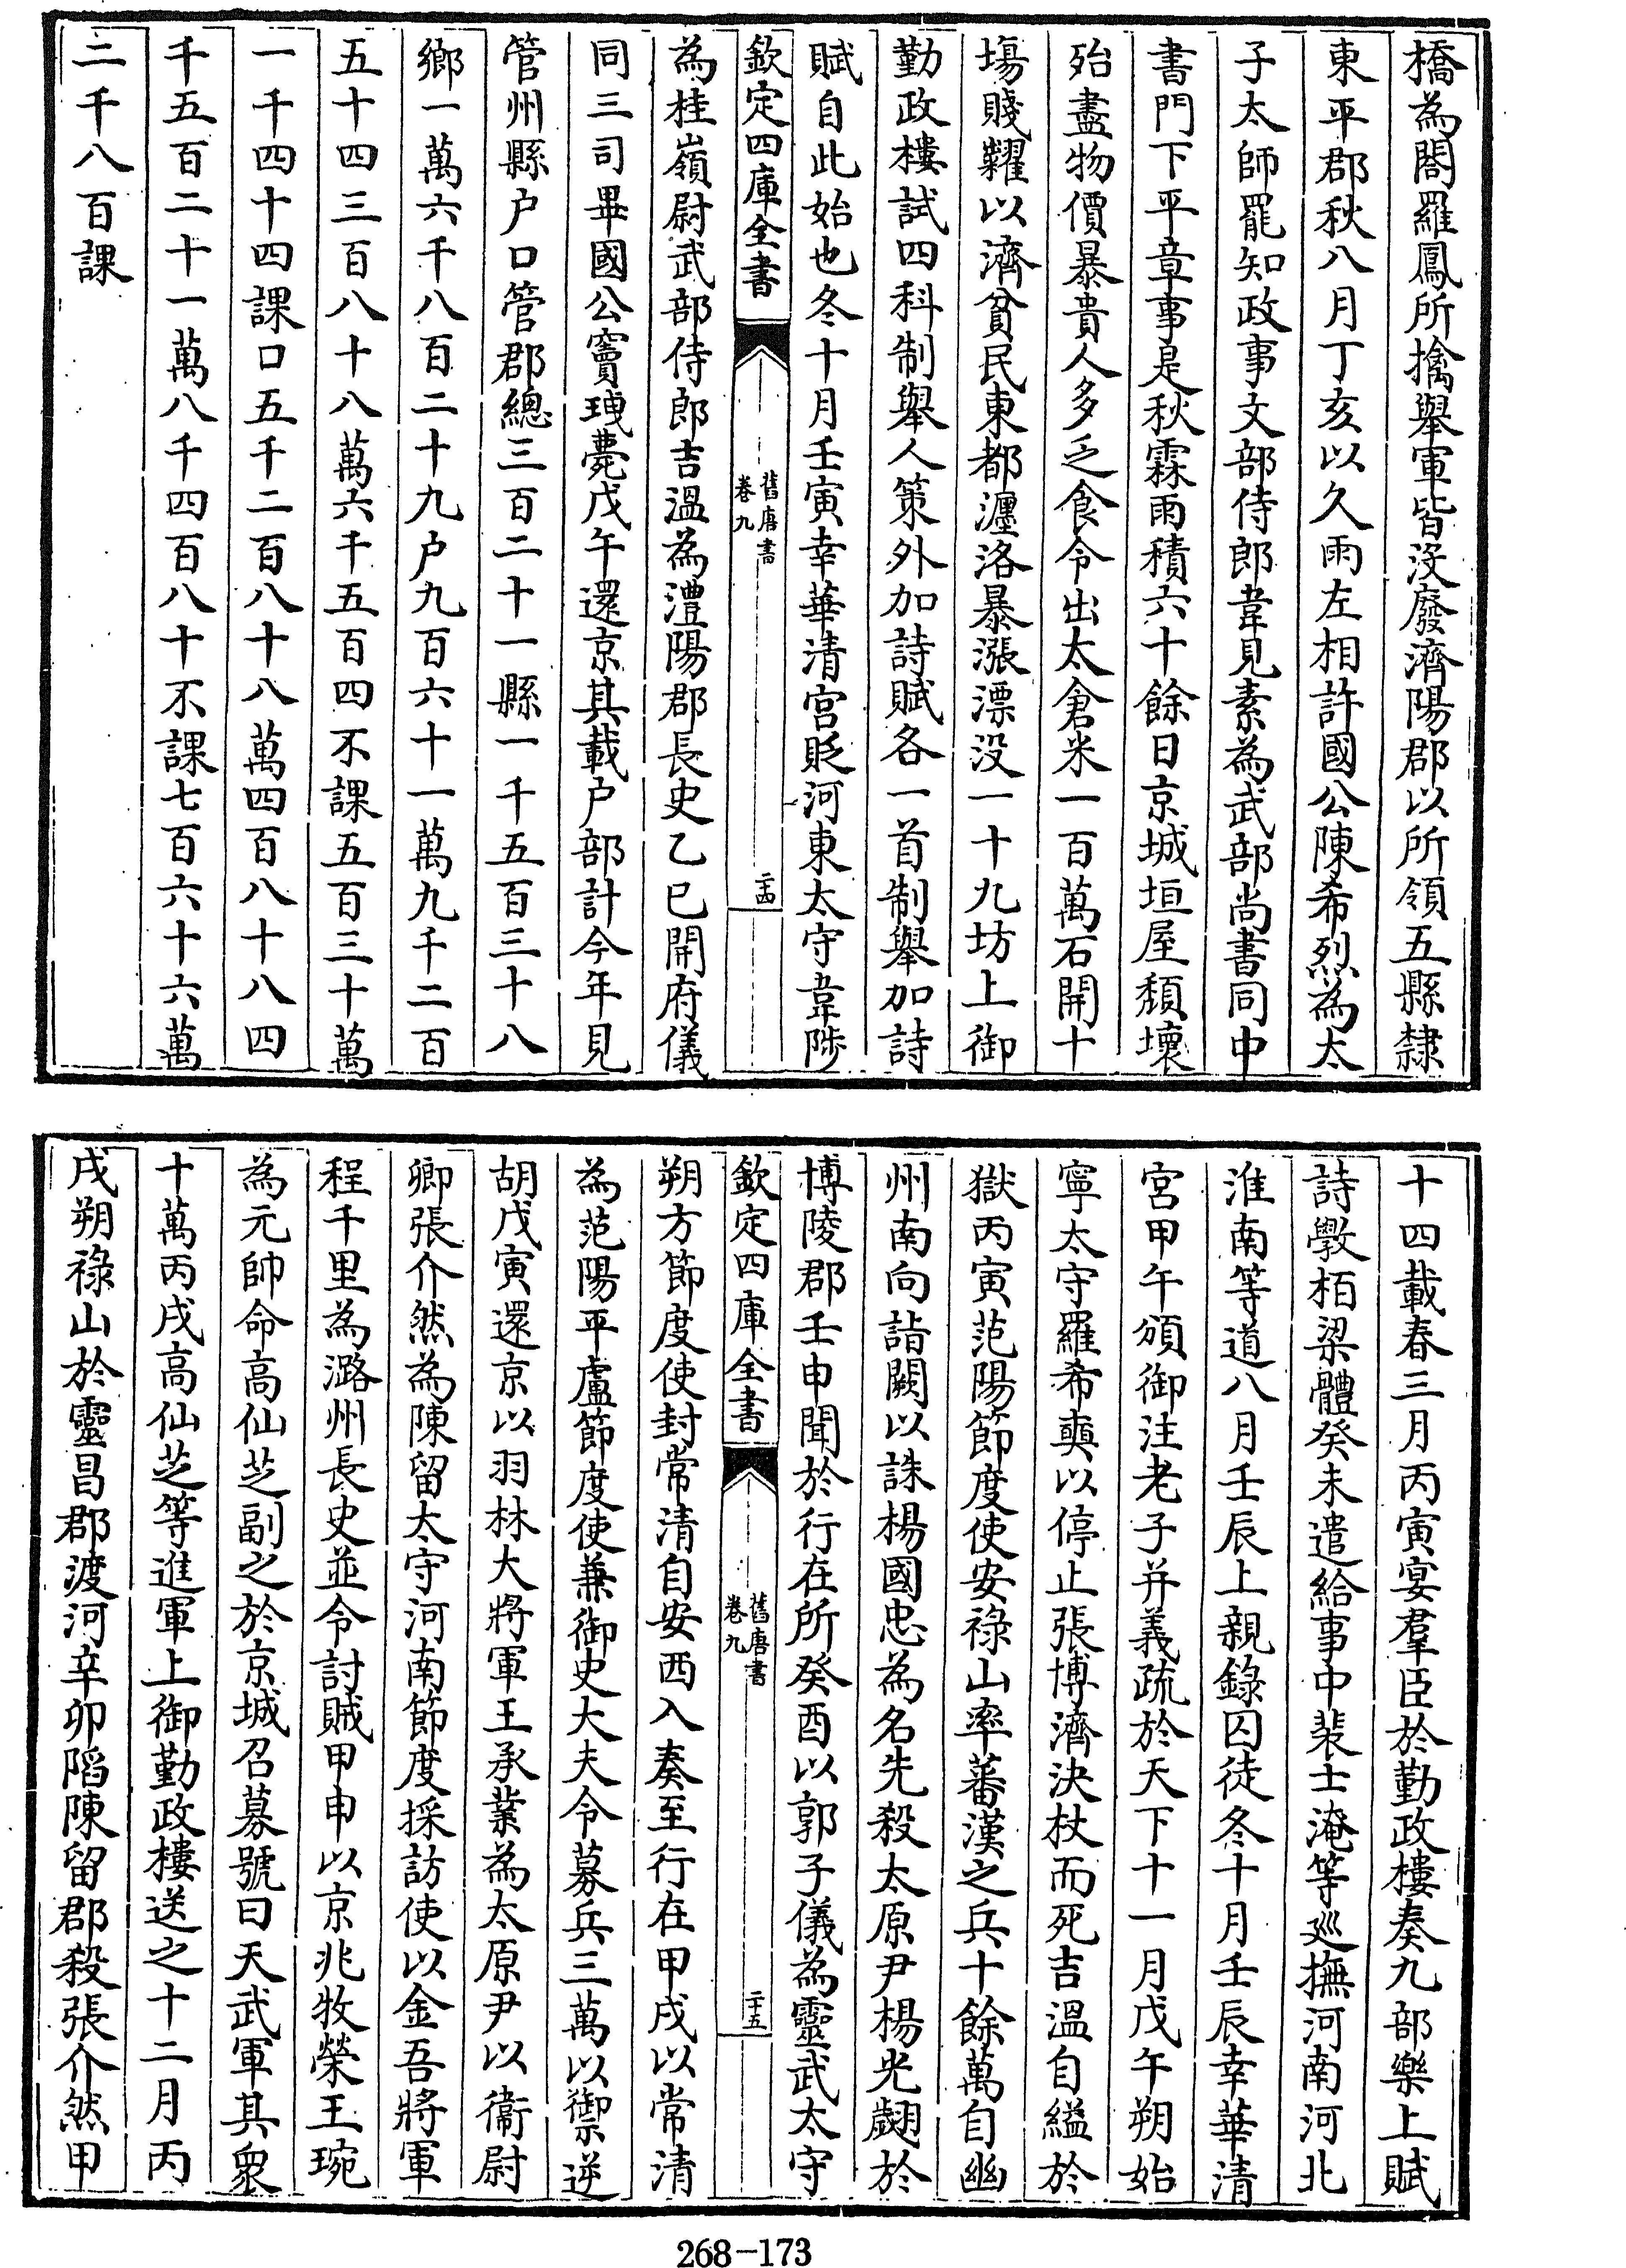 橋為閣羅鳳所擒舉軍皆沒廢濟陽郡以所領五縣隸
東平郡秋八月丁亥以久雨左相許國公陳希烈為太
子太師罷知政事文部侍郎韋見素為武部尚書同中
書門下平章事是秋霖雨積六十餘日京城垣屋頹壞
殆盡物價暴貴人多乏食令出太倉米一百萬石開十
場賤糶以濟貧民東都瀍洛暴漲漂沒一十九坊上御
勤政樓試四科制舉人策外加詩賦各一首制舉加詩
賦自此始也冬十月壬寅幸華清宮貶河東太守韋陟
欽定四庫全書
舊唐書
卷九
二十四
為桂嶺尉武部侍郎吉溫為澧陽郡長史乙巳開府儀
同三司畢國公竇𤣱薨戊午還京其載户部計今年見
管州縣户口管郡總三百二十一縣一千五百三十八
鄉一萬六千八百二十九户九百六十一萬九千二百
五十四三百八十八萬六千五百四不課五百三十萬
一千四十四課口五千二百八十八萬四百八十八四
千五百二十一萬八千四百八十不課七百六十六萬
二千八百課
十四載春三月丙寅宴羣臣於勤政樓奏九部樂上賦
詩斆栢梁體癸未遣給事中裴士淹等廵撫河南河北
淮南等道八月壬辰上親錄囚徒冬十月壬辰幸華清
宮甲午頒御注老子并義疏於天下十一月戊午朔始
寧太守羅希奭以停止張博濟決杖而死吉溫自縊於
獄丙寅范陽節度使安祿山率蕃漢之兵十餘萬自幽
州南向詣闕以誅楊國忠為名先殺太原尹楊光翽於
博陵郡壬申聞於行在所癸酉以郭子儀為靈武太守
欽定四庫全書
舊唐書
卷九
二十五
朔方節度使封常清自安西入奏至行在甲戌以常清
為范陽平盧節度使兼御史大夫令募兵三萬以禦逆
胡戊寅還京以羽林大將軍王承業為太原尹以衞尉
卿張介然為陳留太守河南節度採訪使以金吾將軍
程千里為潞州長史並令討賊甲申以京兆牧榮王琬
為元帥命高仙芝副之於京城召募號曰天武軍其衆
十萬丙戌高仙芝等進軍上御勤政樓送之十二月丙
戌朔祿山於靈昌郡渡河辛卯陷陳留郡殺張介然甲
268-173